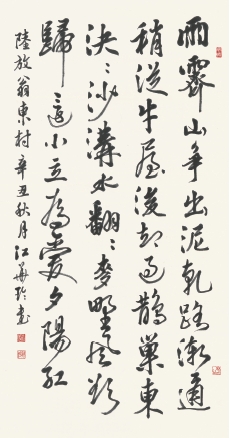 雨霽山爭出泥乾路漸通
稍從牛屋後却過鵲巢東
決〻沙溝水翻〻麥野風欲
歸還小立為愛夕陽紅
陸放翁東村辛丑秋月江華